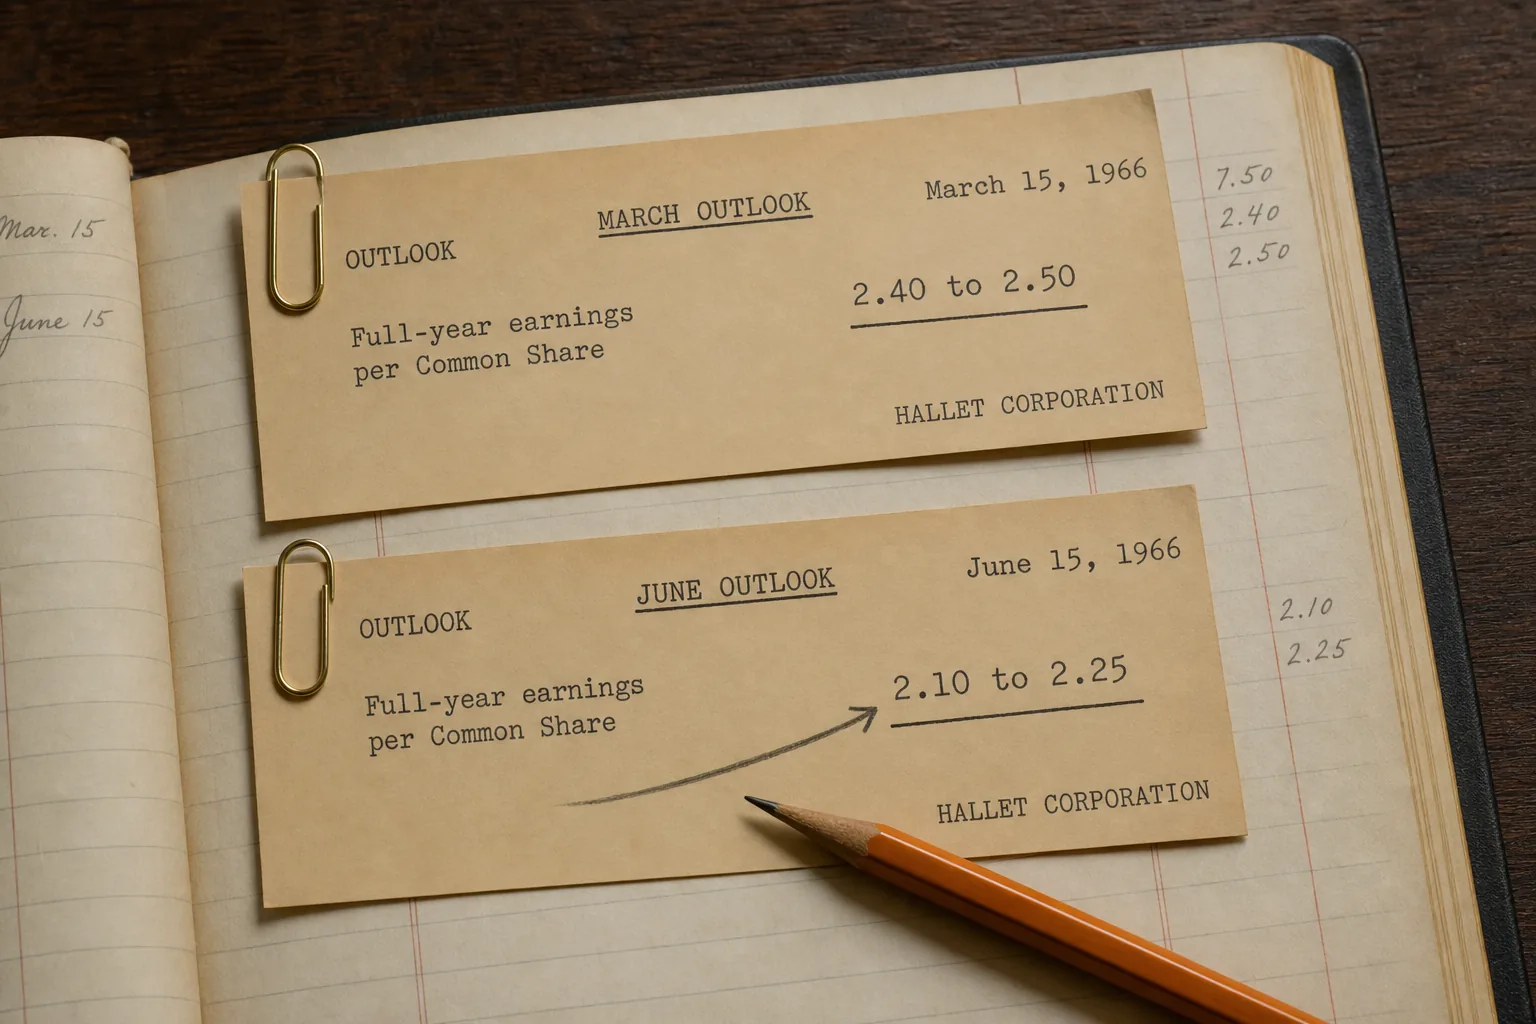 Mar. 15
June 15
MARCH OUTLOOK
March 15, 1966
OUTLOOK
Full-year earnings
per Common Share
2.40 to 2.50
HALLET CORPORATION
7.50
2.40
2.50
JUNE OUTLOOK
June 15, 1966
OUTLOOK
Full-year earnings
per Common Share
2.10 to 2.25
HALLET CORPORATION
2.10
2.25